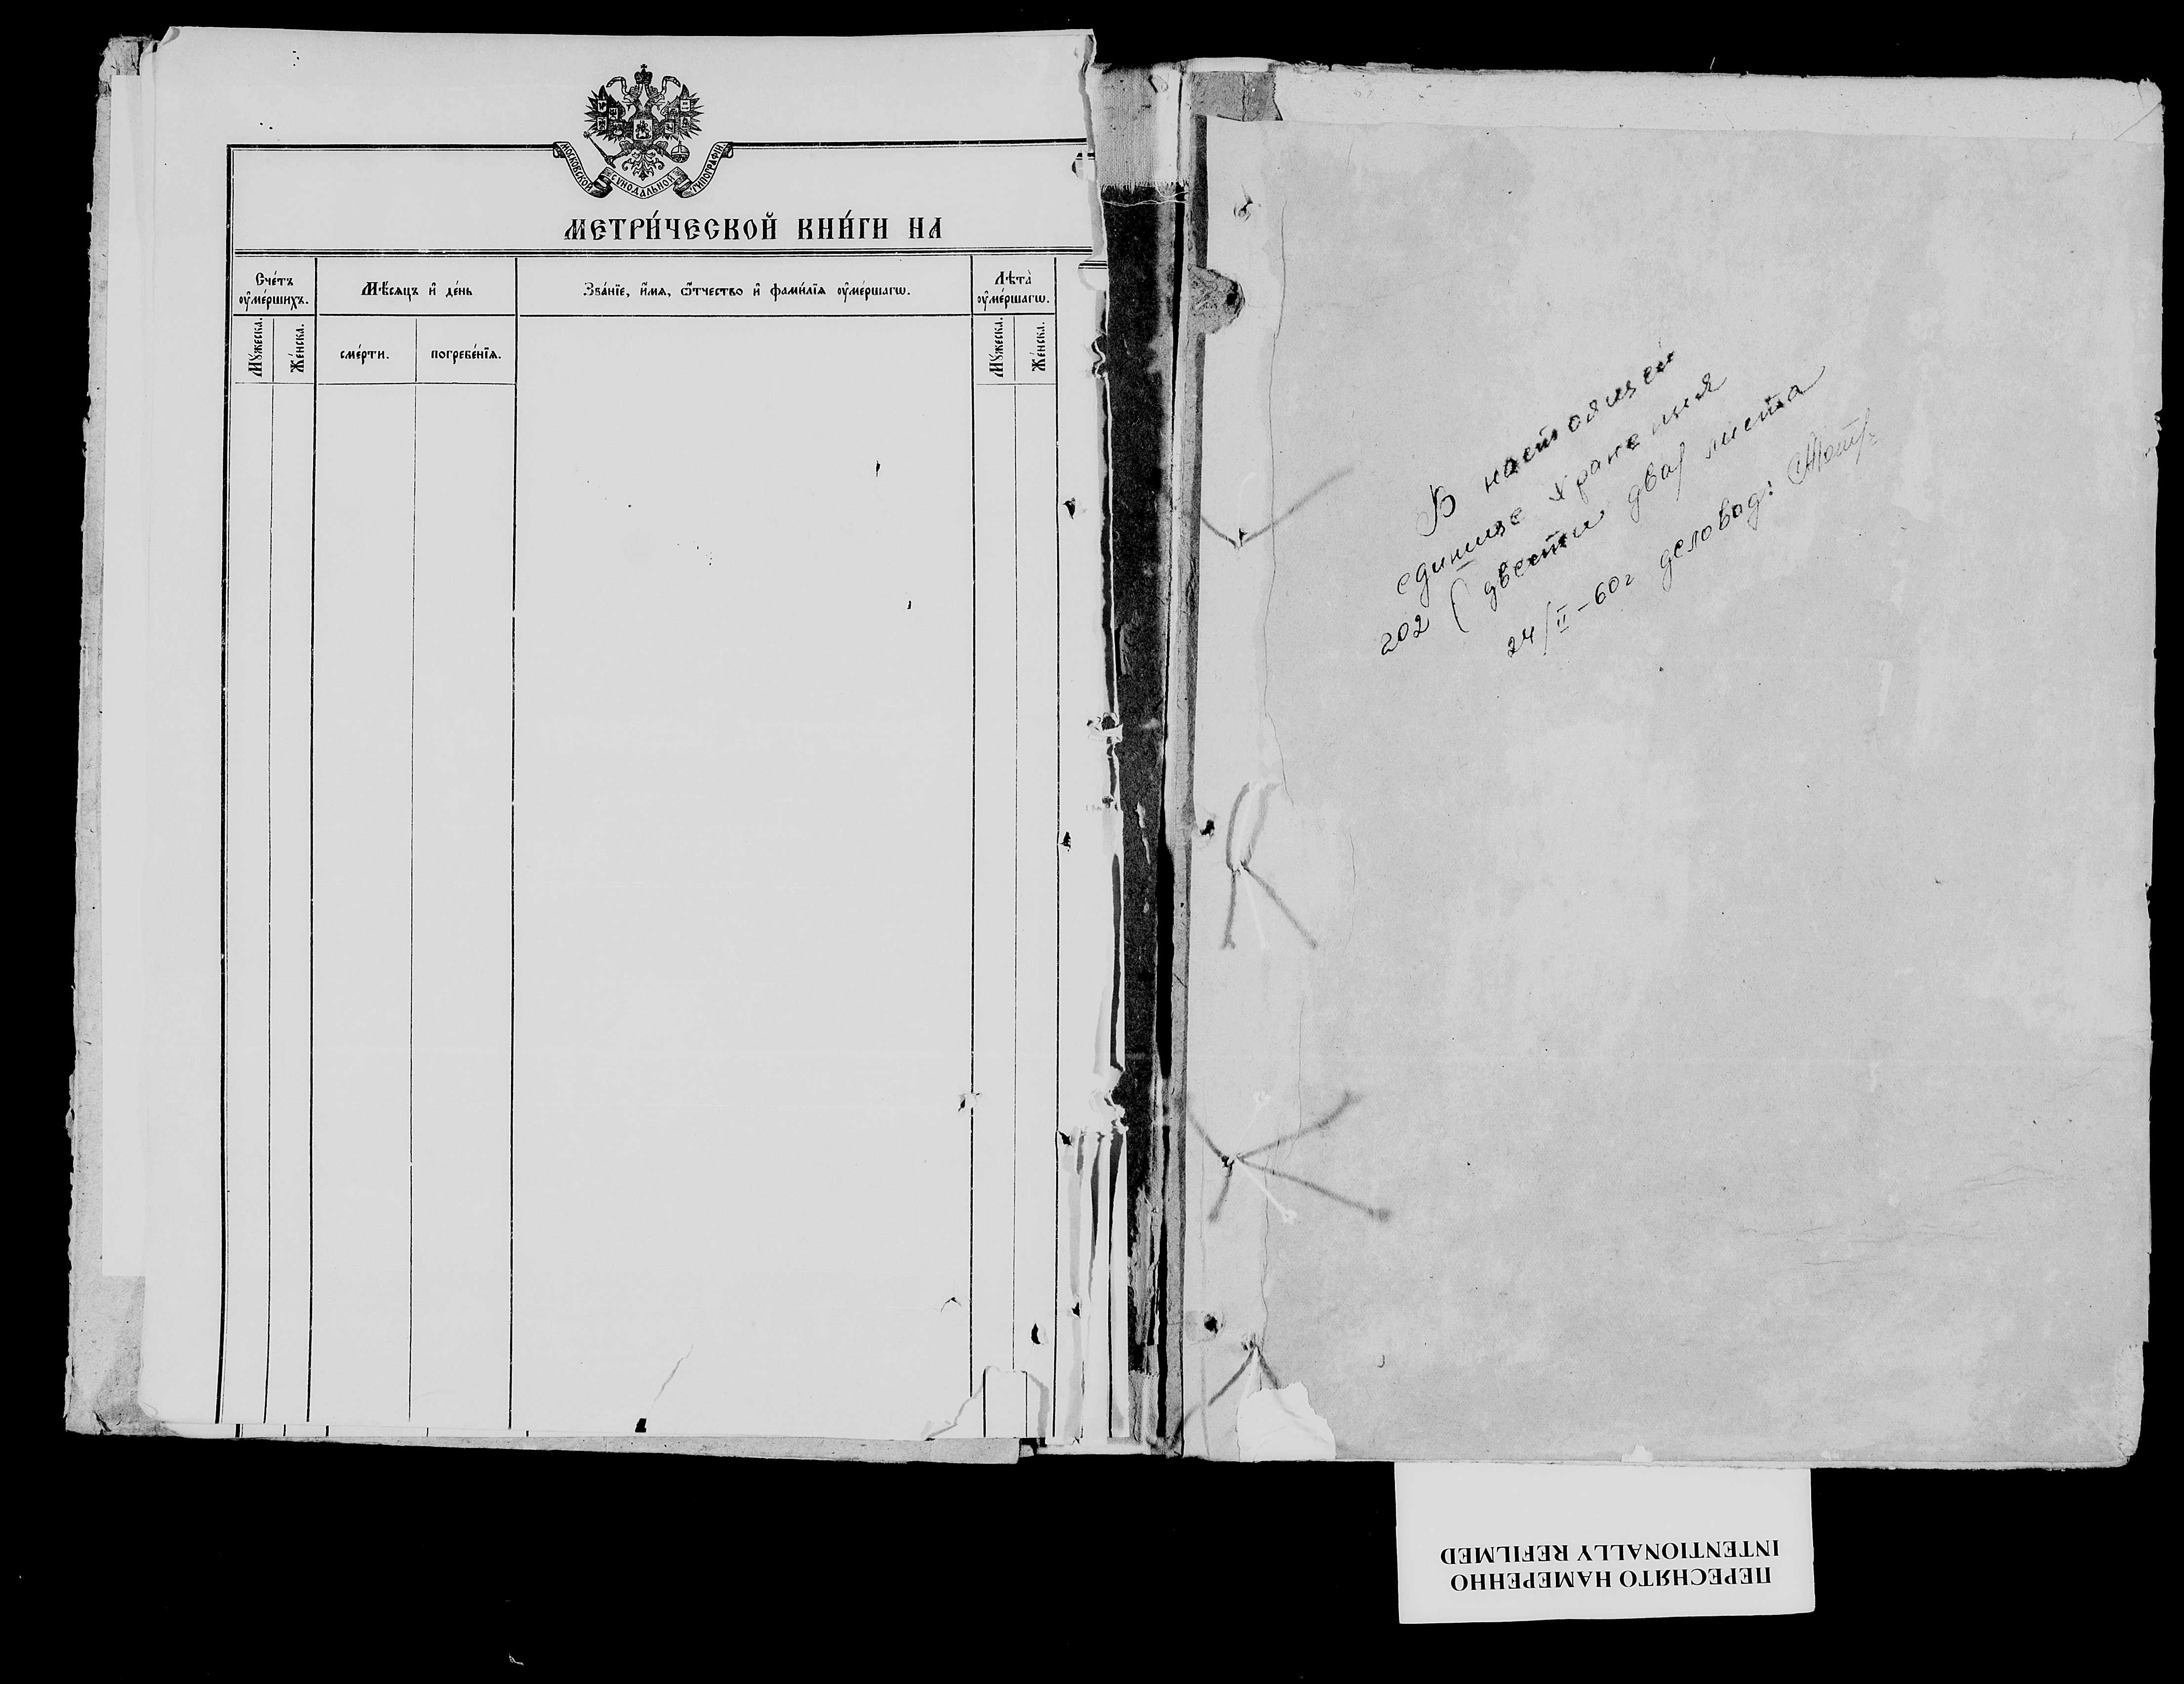 МОСКОВСКОЙ СѴНОДАЛЬНОЙ ТИПОГРАФІИ
МЕТРИ́ЧЕСКОЙ КНИ́ГИ НА
Сче́тъ
оу҆ме́ршихъ.
Мѣ́сяцъ и҆ де́нь
Зва́нїе, и҆́мя, ѻ҆́тчество и҆ фами́лїя оу҆ме́ршагѡ.
Лѣта̀
оу҆ме́ршагѡ.
Мꙋ́жеска.
Же́нска.
сме́рти.
погребе́нїя.
Мꙋ́жеска.
Же́нска.
В настоящей
единице хранения
202 (двести два) листа
24/II-60г деловод:
ПЕРЕСНЯТО НАМЕРЕННО
INTENTIONALLY REFILMED